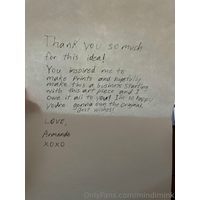 Thank you so much
for this idea!
You inspired me to
make prints and hopefully
make this a business starting
with this art piece and I
owe it all to you! I'm so happy
you're gonna own the original.
Best wishes!
LOVE,
Armando
XOXO
OnlyFans.com/mindimink